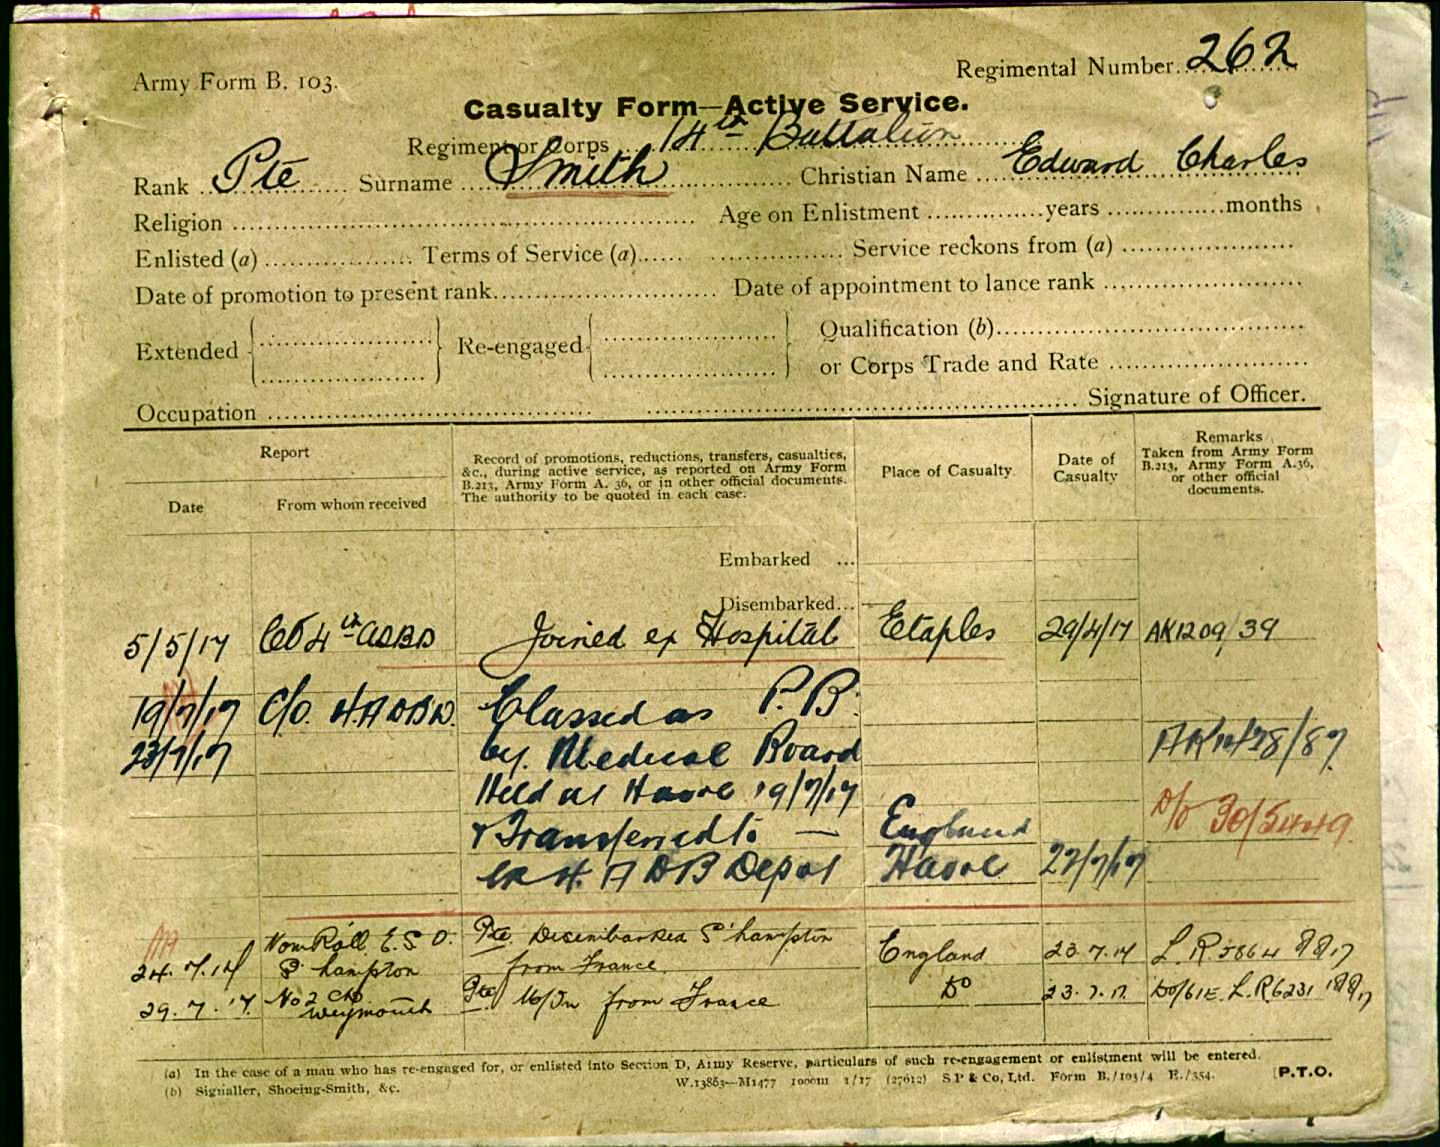 Army Form B. 103.
Regimental Number 262
Casualty Form—Active Service.
Regiment or Corps 14th Battalion
Rank Pte Surname Smith Christian Name Edward Charles
Religion Age on Enlistment years months
Enlisted (a) Terms of Service (a) Service reckons from (a)
Date of promotion to present rank Date of appointment to lance rank
Extended Re-engaged Qualification (b)
or Corps Trade and Rate
Occupation Signature of Officer.
Report
Date
From whom received
Record of promotions, reductions, transfers, casualties,
&c., during active service, as reported on Army Form
B.213, Army Form A. 36, or in other official documents.
The authority to be quoted in each case.
Place of Casualty
Date of
Casualty
Remarks
Taken from Army Form
B.213, Army Form A.36,
or other official
documents.
Embarked ...
Disembarked...
5/5/17 CO 4th ADBD Joined ex Hospital Etaples 29/4/17 AK1209/39
19/7/17 C/O. Classed as P.B.
23/7/17 by Medical Board
Held at Havre 19/7/17
& Transferred to — England
ex Depot Havre 22/7/17
D/o 30/5449
24.7.17 Nom Roll E.S.O. S'hampton Pte Disembarked S'hampton from France England 23.7.17 L.R.
29.7.17 No 2 Weymouth Pte M/In from France Do 23.7.17 L.R.6231
(a) In the case of a man who has re-engaged for, or enlisted into Section D, Army Reserve, particulars of such re-engagement or enlistment will be entered.
(b) Signaller, Shoeing-Smith, &c. W.13863—M1477 1000m 1/17 (27612) S P & Co, Ltd. Form B./103/4 E./354. P.T.O.